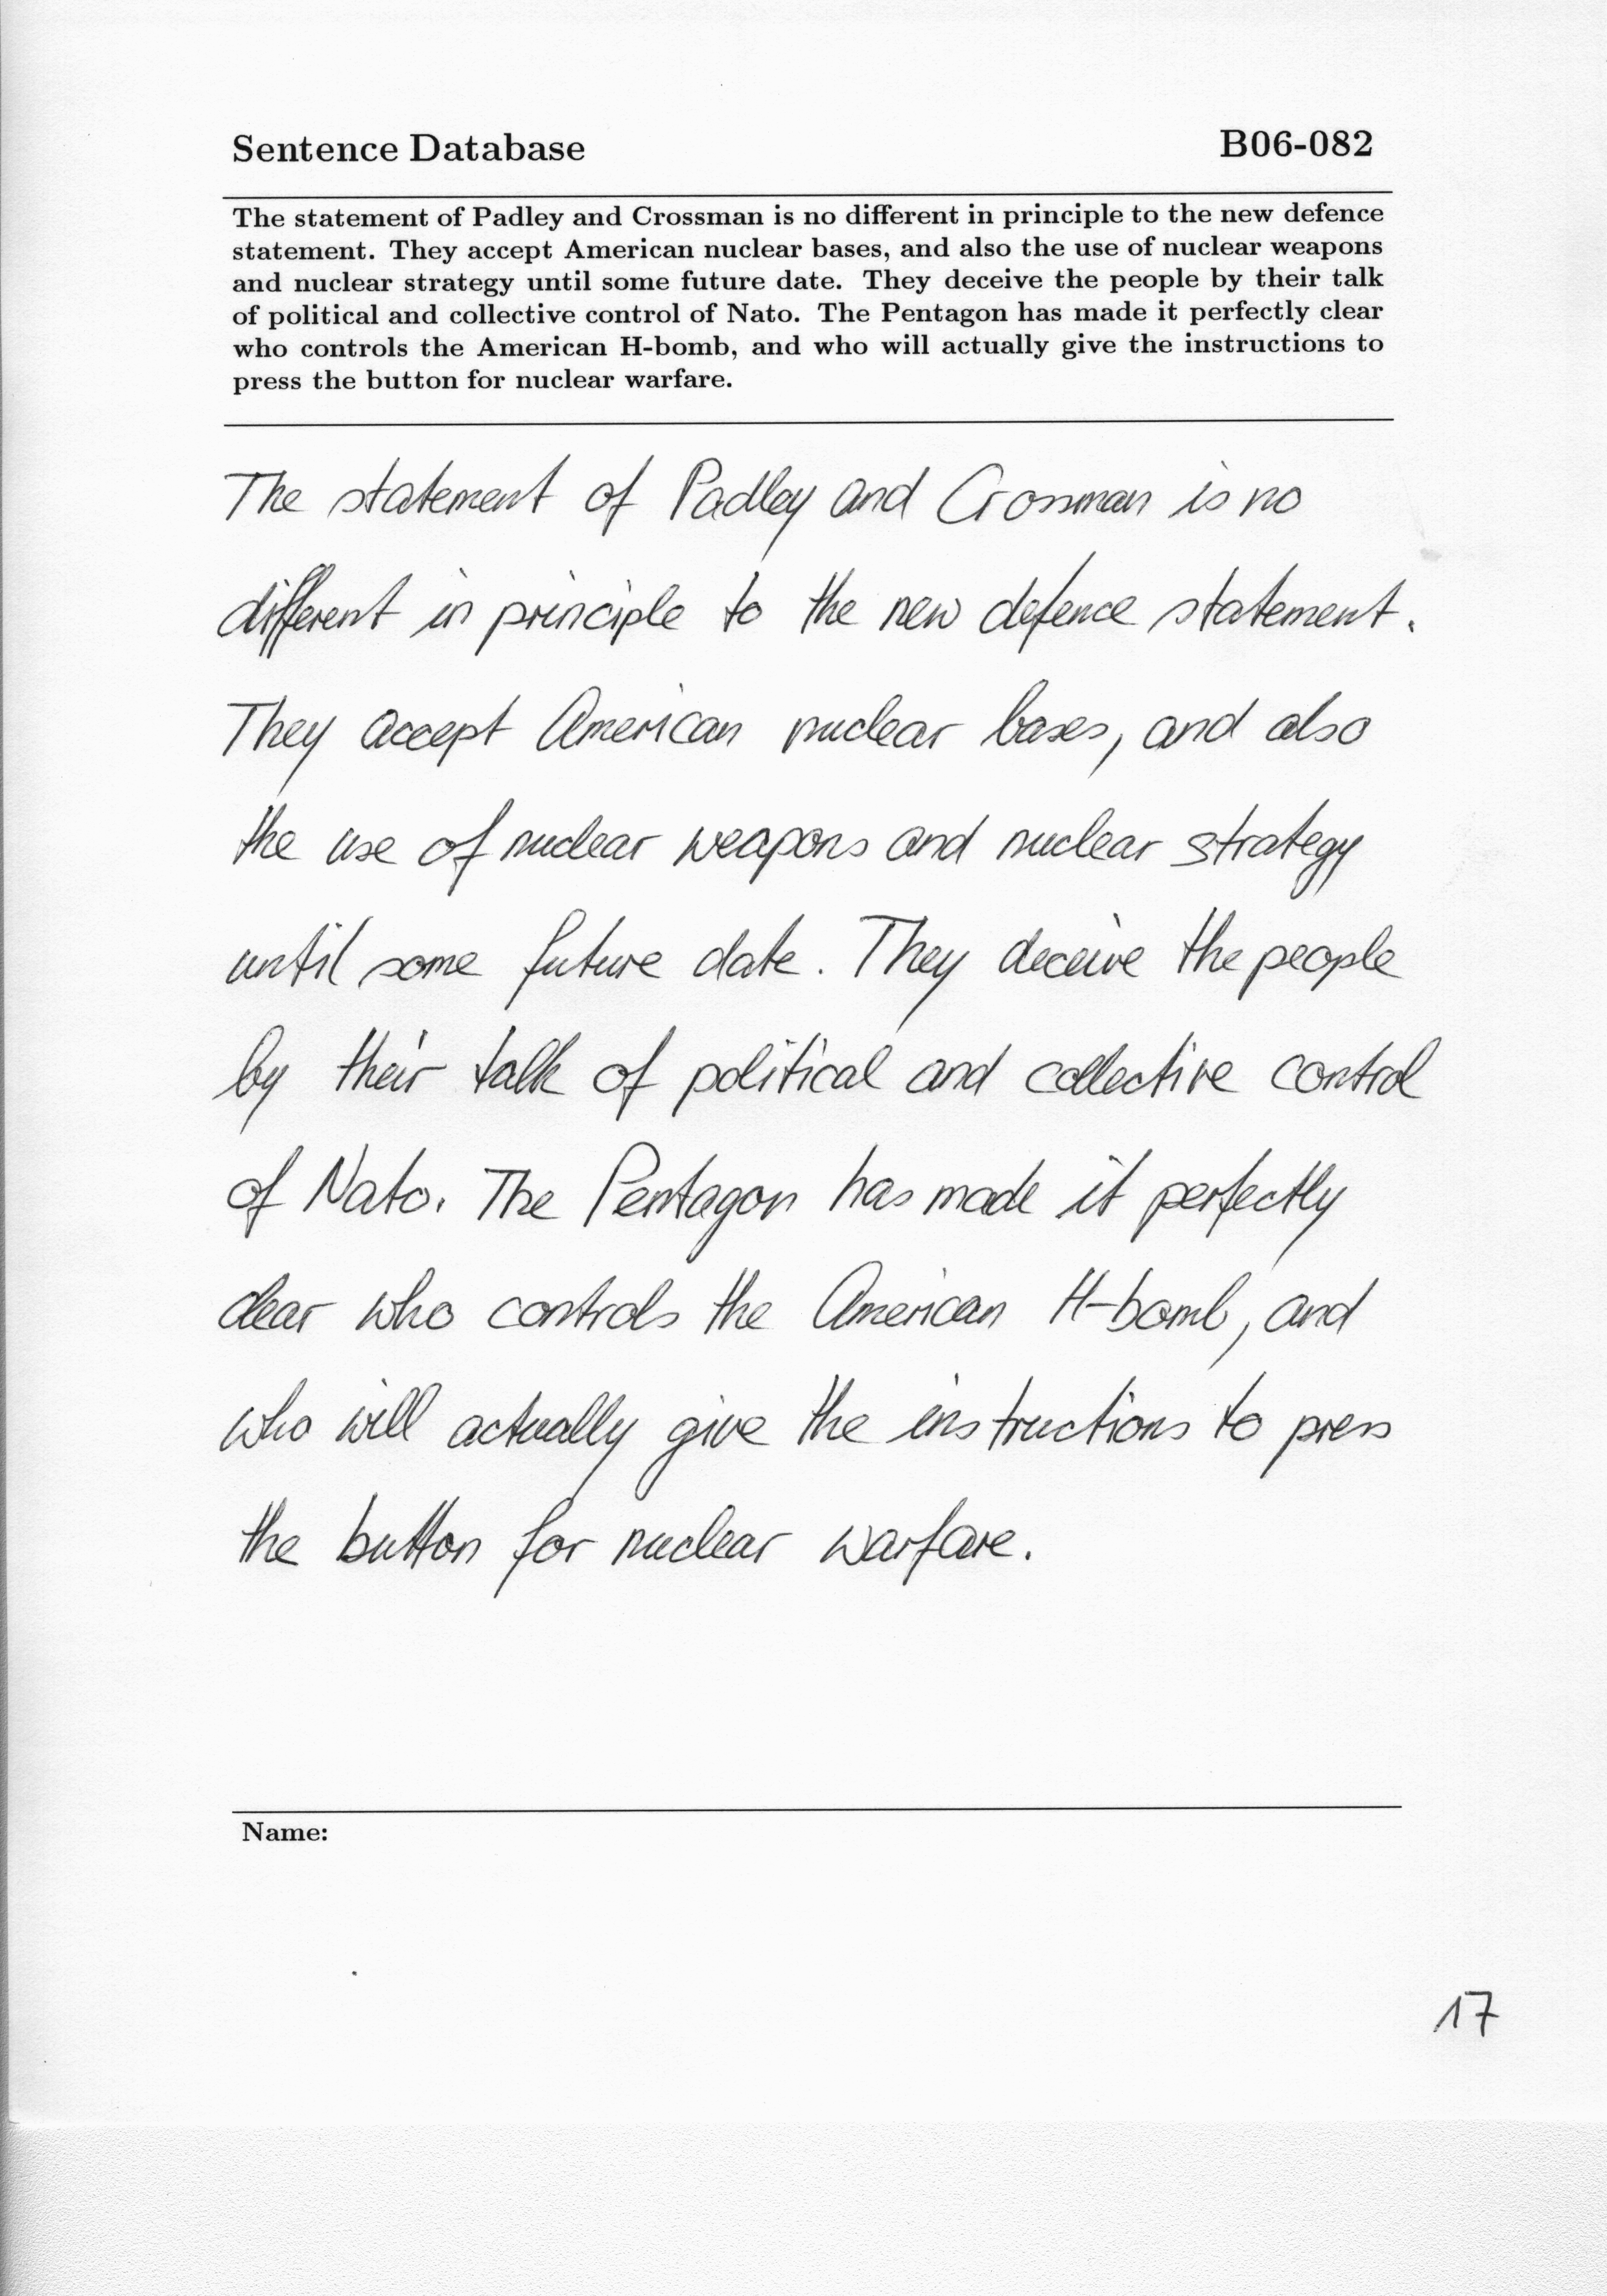 Sentence Database B06-082
The statement of Padley and Crossman is no different in principle to the new defence
statement. They accept American nuclear bases, and also the use of nuclear weapons
and nuclear strategy until some future date. They deceive the people by their talk
of political and collective control of Nato. The Pentagon has made it perfectly clear
who controls the American H-bomb, and who will actually give the instructions to
press the button for nuclear warfare.
The statement of Padley and Crossman is no
different in principle to the new defence statement.
They accept American nuclear bases, and also
the use of nuclear weapons and nuclear strategy
until some future date. They deceive the people
by their talk of political and collective control
of Nato. The Pentagon has made it perfectly
clear who controls the American H-bomb, and
who will actually give the instructions to press
the button for nuclear warfare.
Name:
17